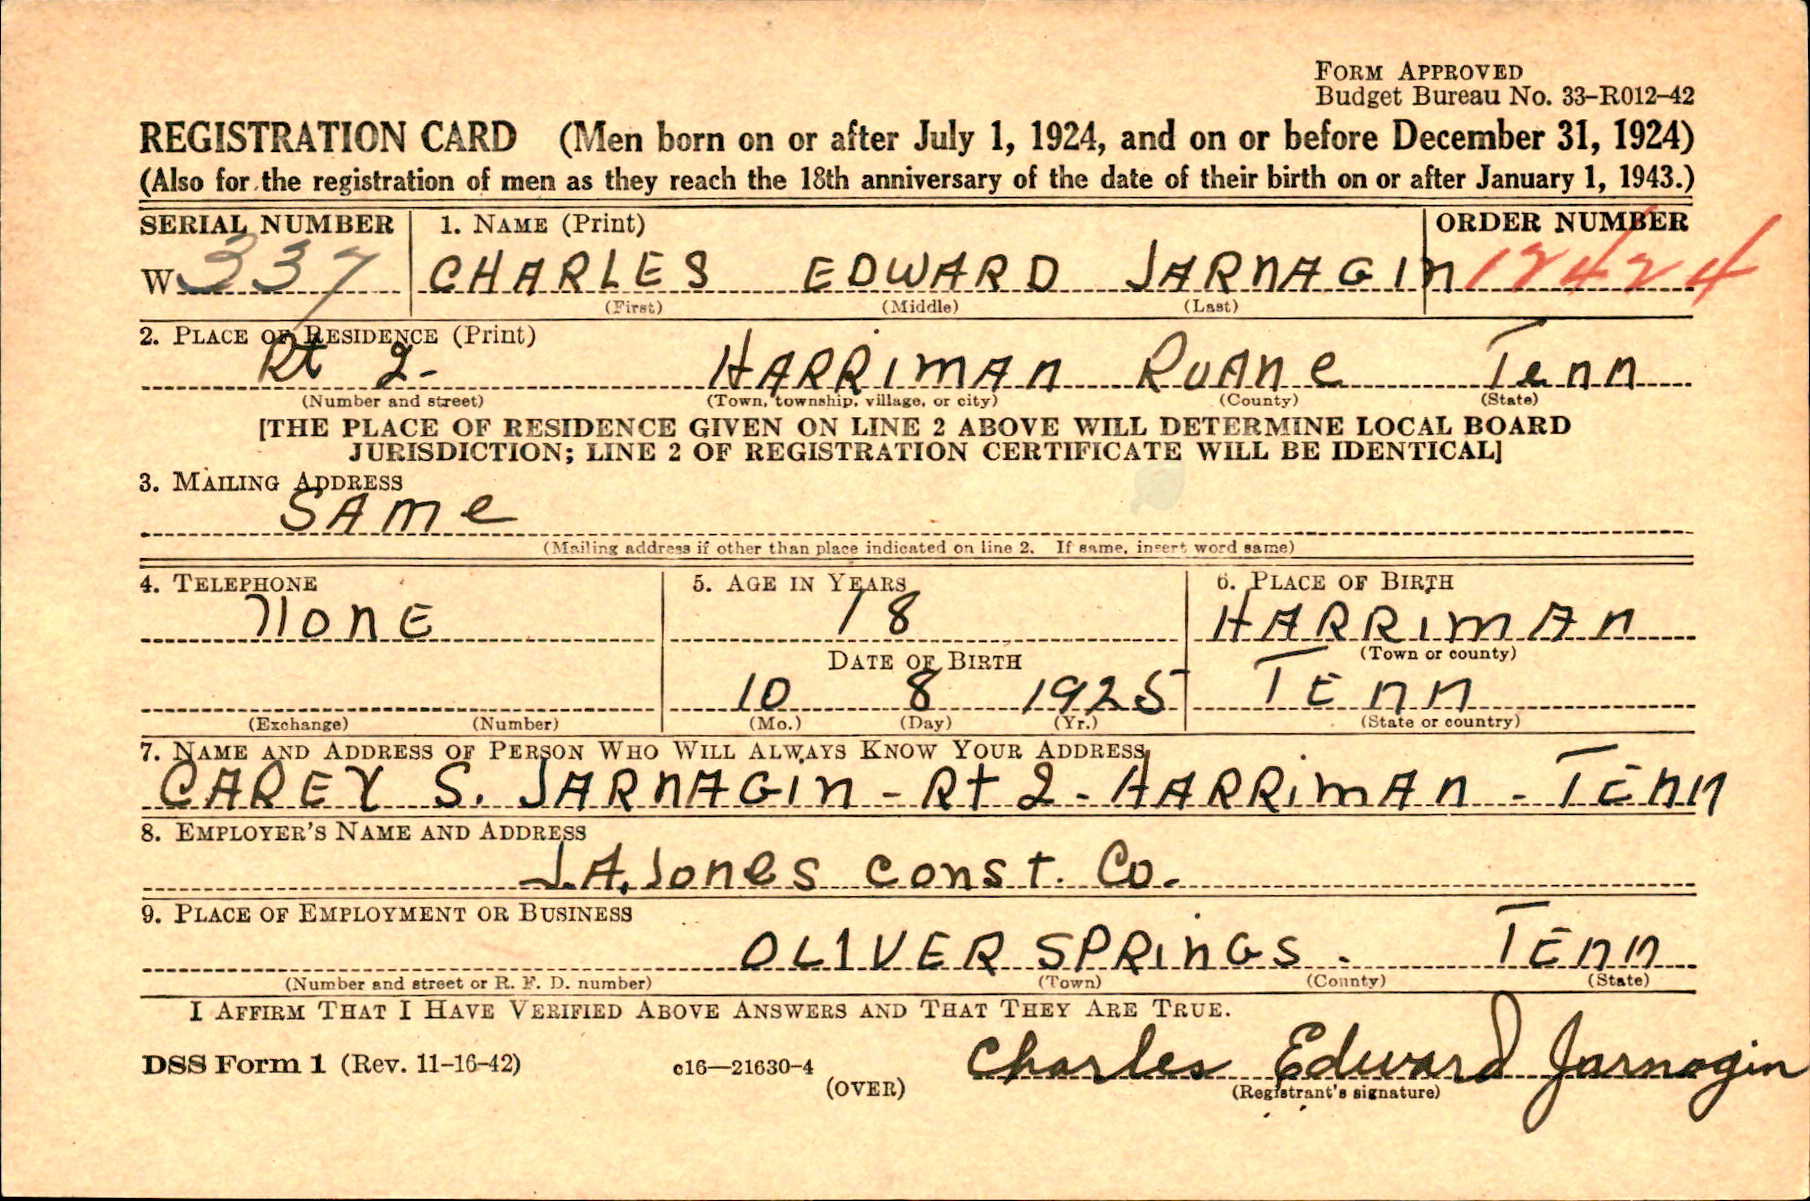 FORM APPROVED
Budget Bureau No. 33–R012–42
REGISTRATION CARD (Men born on or after July 1, 1924, and on or before December 31, 1924)
(Also for the registration of men as they reach the 18th anniversary of the date of their birth on or after January 1, 1943.)
SERIAL NUMBER 1. NAME (Print) ORDER NUMBER
W 337 CHARLES EDWARD JARNAGIN 12424
(First) (Middle) (Last)
2. PLACE OF RESIDENCE (Print)
Rt 2- HARRIMAN ROANE Tenn
(Number and street) (Town, township, village, or city) (County) (State)
[THE PLACE OF RESIDENCE GIVEN ON LINE 2 ABOVE WILL DETERMINE LOCAL BOARD
JURISDICTION; LINE 2 OF REGISTRATION CERTIFICATE WILL BE IDENTICAL]
3. MAILING ADDRESS
SAME
(Mailing address if other than place indicated on line 2. If same, insert word same)
4. TELEPHONE 5. AGE IN YEARS 6. PLACE OF BIRTH
NONE 18 HARRIMAN
DATE OF BIRTH (Town or county)
10 8 1925 TENN
(Exchange) (Number) (Mo.) (Day) (Yr.) (State or country)
7. NAME AND ADDRESS OF PERSON WHO WILL ALWAYS KNOW YOUR ADDRESS
CAREY S. JARNAGIN - Rt 2 - HARRIMAN - TENN
8. EMPLOYER'S NAME AND ADDRESS
J.A. Jones Const. Co.
9. PLACE OF EMPLOYMENT OR BUSINESS
OLIVER SPRINGS. TENN
(Number and street or R. F. D. number) (Town) (County) (State)
I AFFIRM THAT I HAVE VERIFIED ABOVE ANSWERS AND THAT THEY ARE TRUE.
DSS Form 1 (Rev. 11-16-42) c16—21630-4 Charles Edward Jarnagin
(OVER) (Registrant's signature)